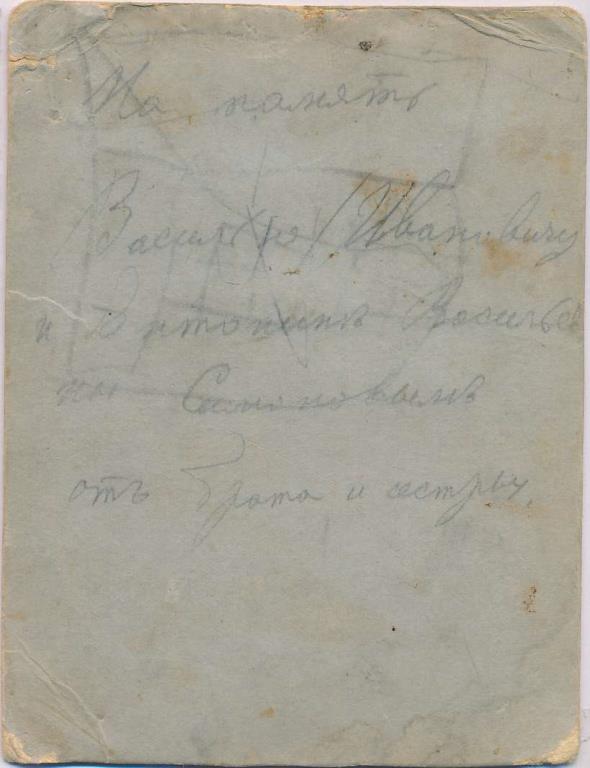 На память
Василью Ивановичу
и Антонинѣ Василье
ны Симоновымъ
отъ брата и сестры.